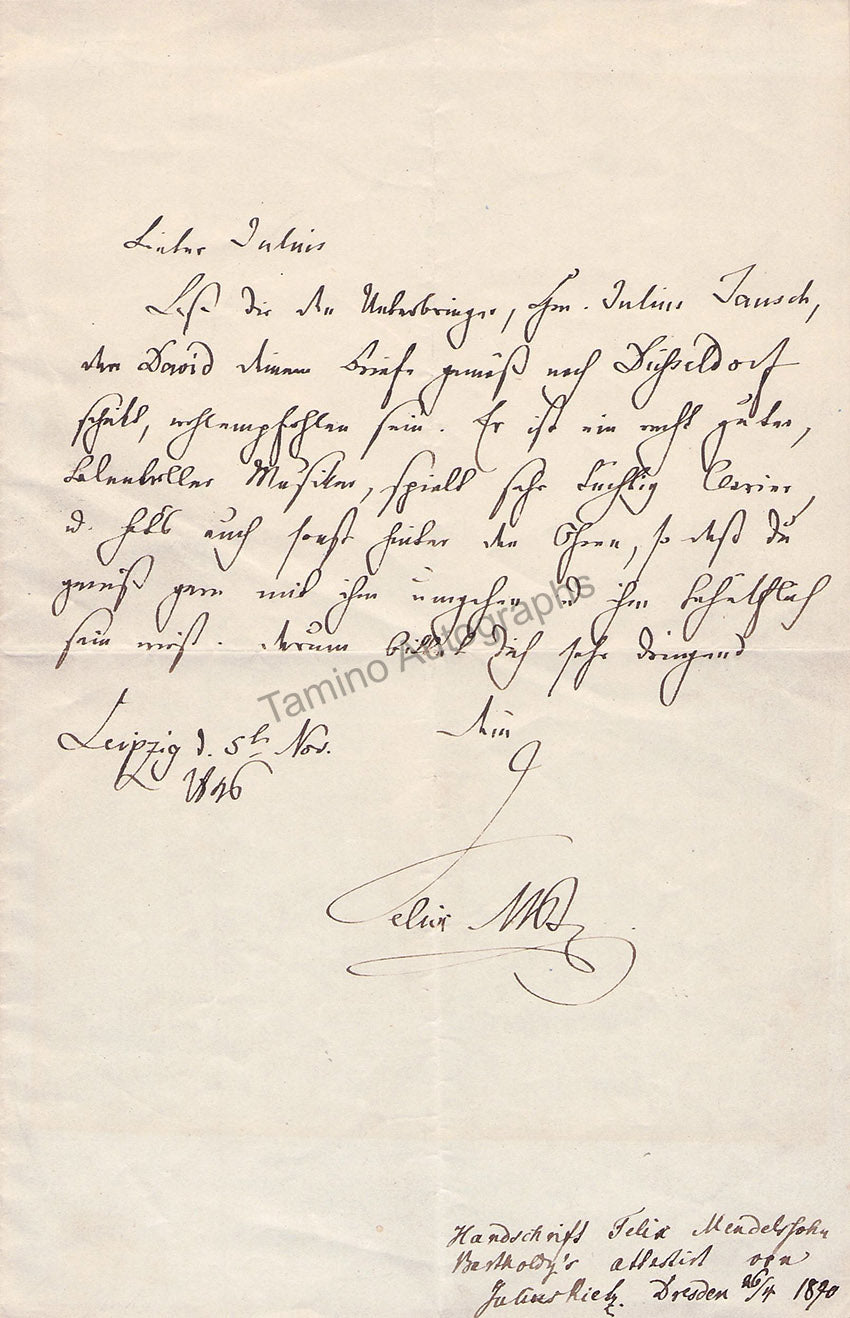 Lieber Julius
Laß dir den Ueberbringer, Hrn. Julius Tausch,
den David deinem Briefe gemäß nach Düsseldorf
schickt, wohlempfohlen sein. Er ist ein recht guter,
talentvoller Musiker, spielt sehr tüchtig Clavier,
u. hats auch sonst hinter den Ohren, so daß du
gewiß gern mit ihm umgehen u ihm behülflich
sein wirst. Darum bittet dich sehr dringend
Leipzig d. 5te Nov. Dein
1846
Felix MB
Tamino Autographs
Handschrift Felix Mendelssohn
Bartholdy's attestirt von
Julius Rietz. Dresden 26/4 1870